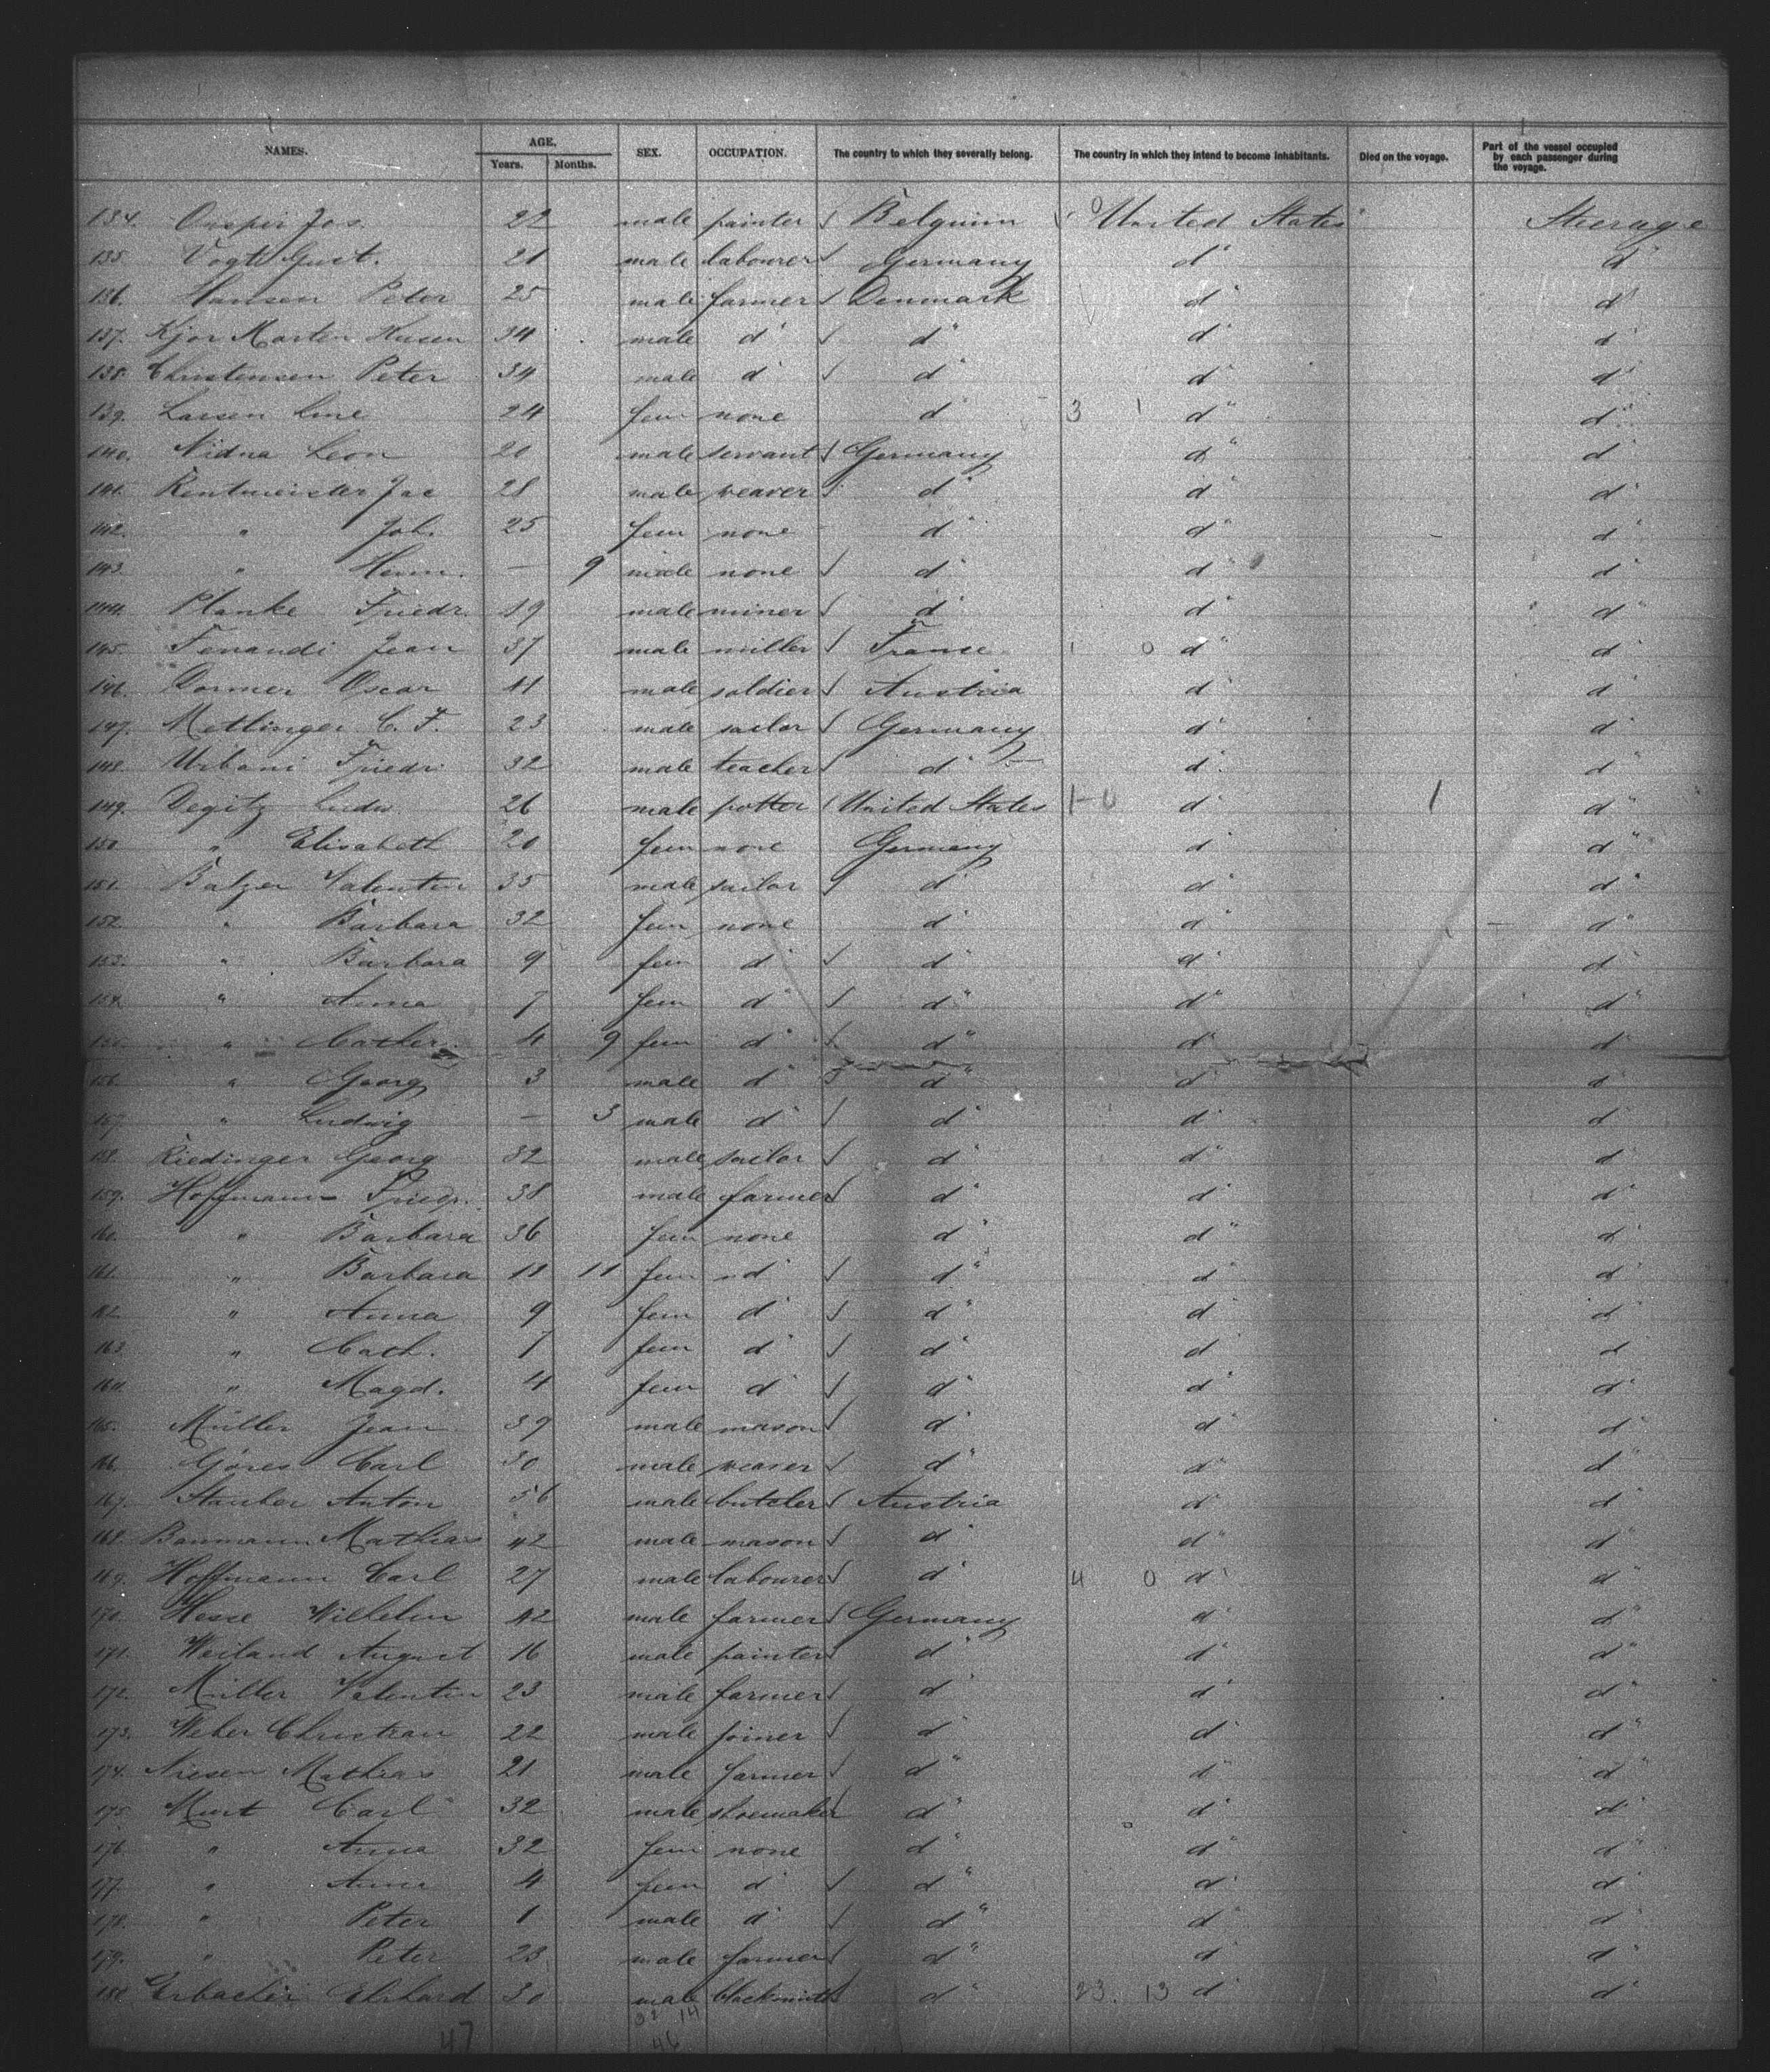 NAMES. AGE. SEX. OCCUPATION. The country to which they severally belong. The country in which they intend to become inhabitants. Died on the voyage. Part of the vessel occupied by each passenger during the voyage.
Years. Months.
134. Jos. 22 male painter Belgium United States Steerage
135. Vogt Gust. 21 male labourer Germany d° d°
136. Hansen Peter 25 male farmer Denmark d° d°
137. Kjor Marten 34 male d° d° d° d°
138. Christensen Peter 34 male d° d° d° d°
139. Larsen Line 24 fem none d° 3 1 d° d°
140. Nidna Leon 20 male servant Germany d° d°
141. Rentmeister Jac 28 male weaver d° d° d°
142. " Joh. 25 fem none d° d° d°
143. " Herm. — 9 male none d° d° d°
144. Planke Friedr. 19 male miner d° d° d°
145. Jean 37 male miller France 1 0 d° d°
146. Dormer Oscar 41 male soldier Austria d° d°
147. Metlinger C. F. 23 male sailor Germany d° d°
148. Urbani Friedr. 32 male teacher d° d° d°
149. Degitz Ludw. 26 male potter United States 1 0 d° 1 d°
150. " Elisabeth 20 fem none Germany d° d°
151. Balzer Valentin 35 male sailor d° d° d°
152. " Barbara 32 fem none d° d° d°
153. " Barbara 9 fem d° d° d° d°
154. " Anna 7 fem d° d° d° d°
155. " Cather. 4 9 fem d° d° d° d°
156. " Georg 3 male d° d° d° d°
157. " Ludwig — 3 male d° d° d° d°
158. Riedinger Georg 32 male sailor d° d° d°
159. Hoffmann Friedr. 38 male farmer d° d° d°
160. " Barbara 36 fem none d° d° d°
161. " Barbara 11 11 fem d° d° d° d°
162. " Anna 9 fem d° d° d° d°
163. " Cath. 7 fem d° d° d° d°
164. " Magd. 4 fem d° d° d° d°
165. Müller Jean 39 male mason d° d° d°
166. Göres Carl 30 male weaver d° d° d°
167. Stauber Anton 56 male butcher Austria d° d°
168. Baumann Mathias 42 male mason d° d° d°
169. Hoffmann Carl 27 male labourer d° 4 0 d° d°
170. Hesse Wilhelm 42 male farmer Germany d° d°
171. Weiland August 16 male painter d° d° d°
172. Müller Valentin 23 male farmer d° d° d°
173. Weber Christian 22 male joiner d° d° d°
174. Niesen Mathias 21 male farmer d° d° d°
175. Murt Carl 32 male shoemaker d° d° d°
176. " Anna 32 fem none d° d° d°
177. " Anna 4 fem d° d° d° d°
178. " Peter 1 male d° d° d° d°
179. " Peter 23 male farmer d° d° d°
180. Erbacher Ehrhard 30 male blacksmith d° 23. 13 d° d°
32 14
47 46